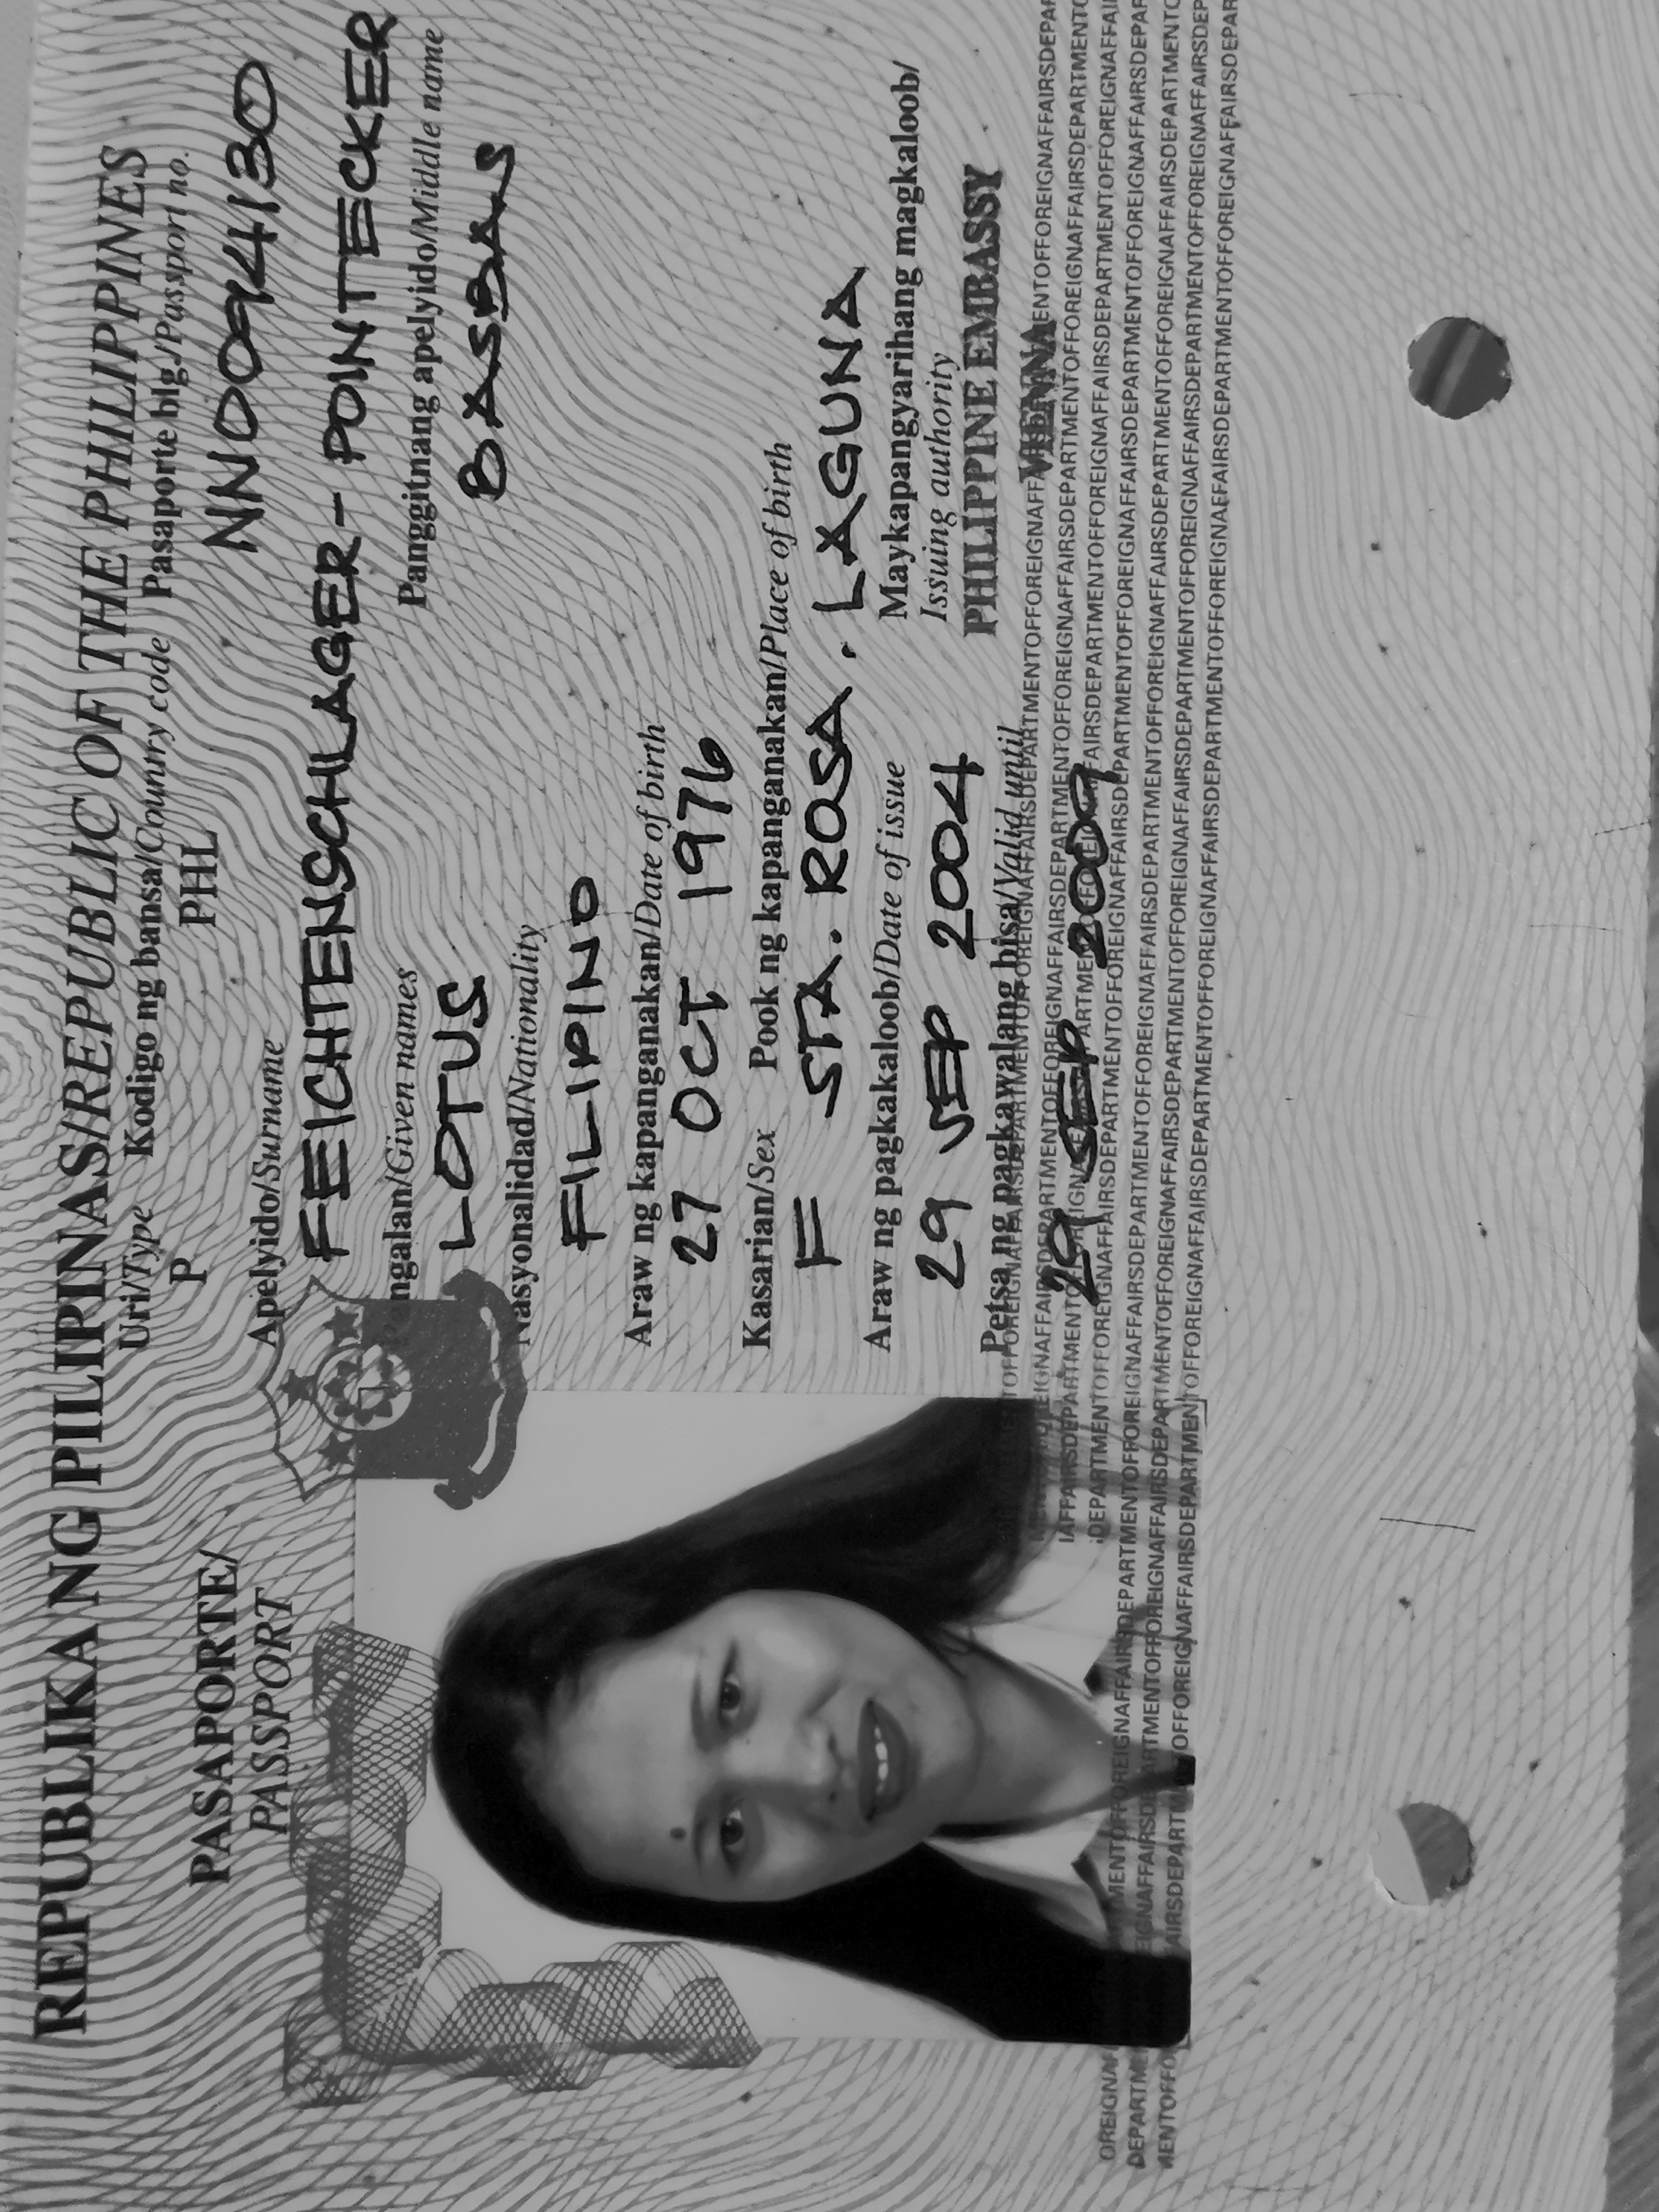 REPUBLIKA NG PILIPINAS/REPUBLIC OF THE PHILIPPINES
PASAPORTE/
PASSPORT
Uri/Type Kodigo ng bansa/Country code Pasaporte blg./Passport no.
P PHL NN0094130
Apelyido/Surname
FEICHTENSCHLAGER-POINTECKER
ngalan/Given names Panggitnang apelyido/Middle name
LOTUS BASBAS
Nasyonalidad/Nationality
FILIPINO
Araw ng kapanganakan/Date of birth
27 OCT 1976
Kasarian/Sex Pook ng kapanganakan/Place of birth
F STA. ROSA. LAGUNA
Araw ng pagkakaloob/Date of issue Maykapangyarihang magkaloob/
Issuing authority
29 SEP 2004 PHILIPPINE EMBASSY
VIENNA
Petsa ng pagkawalang bisa/Valid until
29 SEP 2009